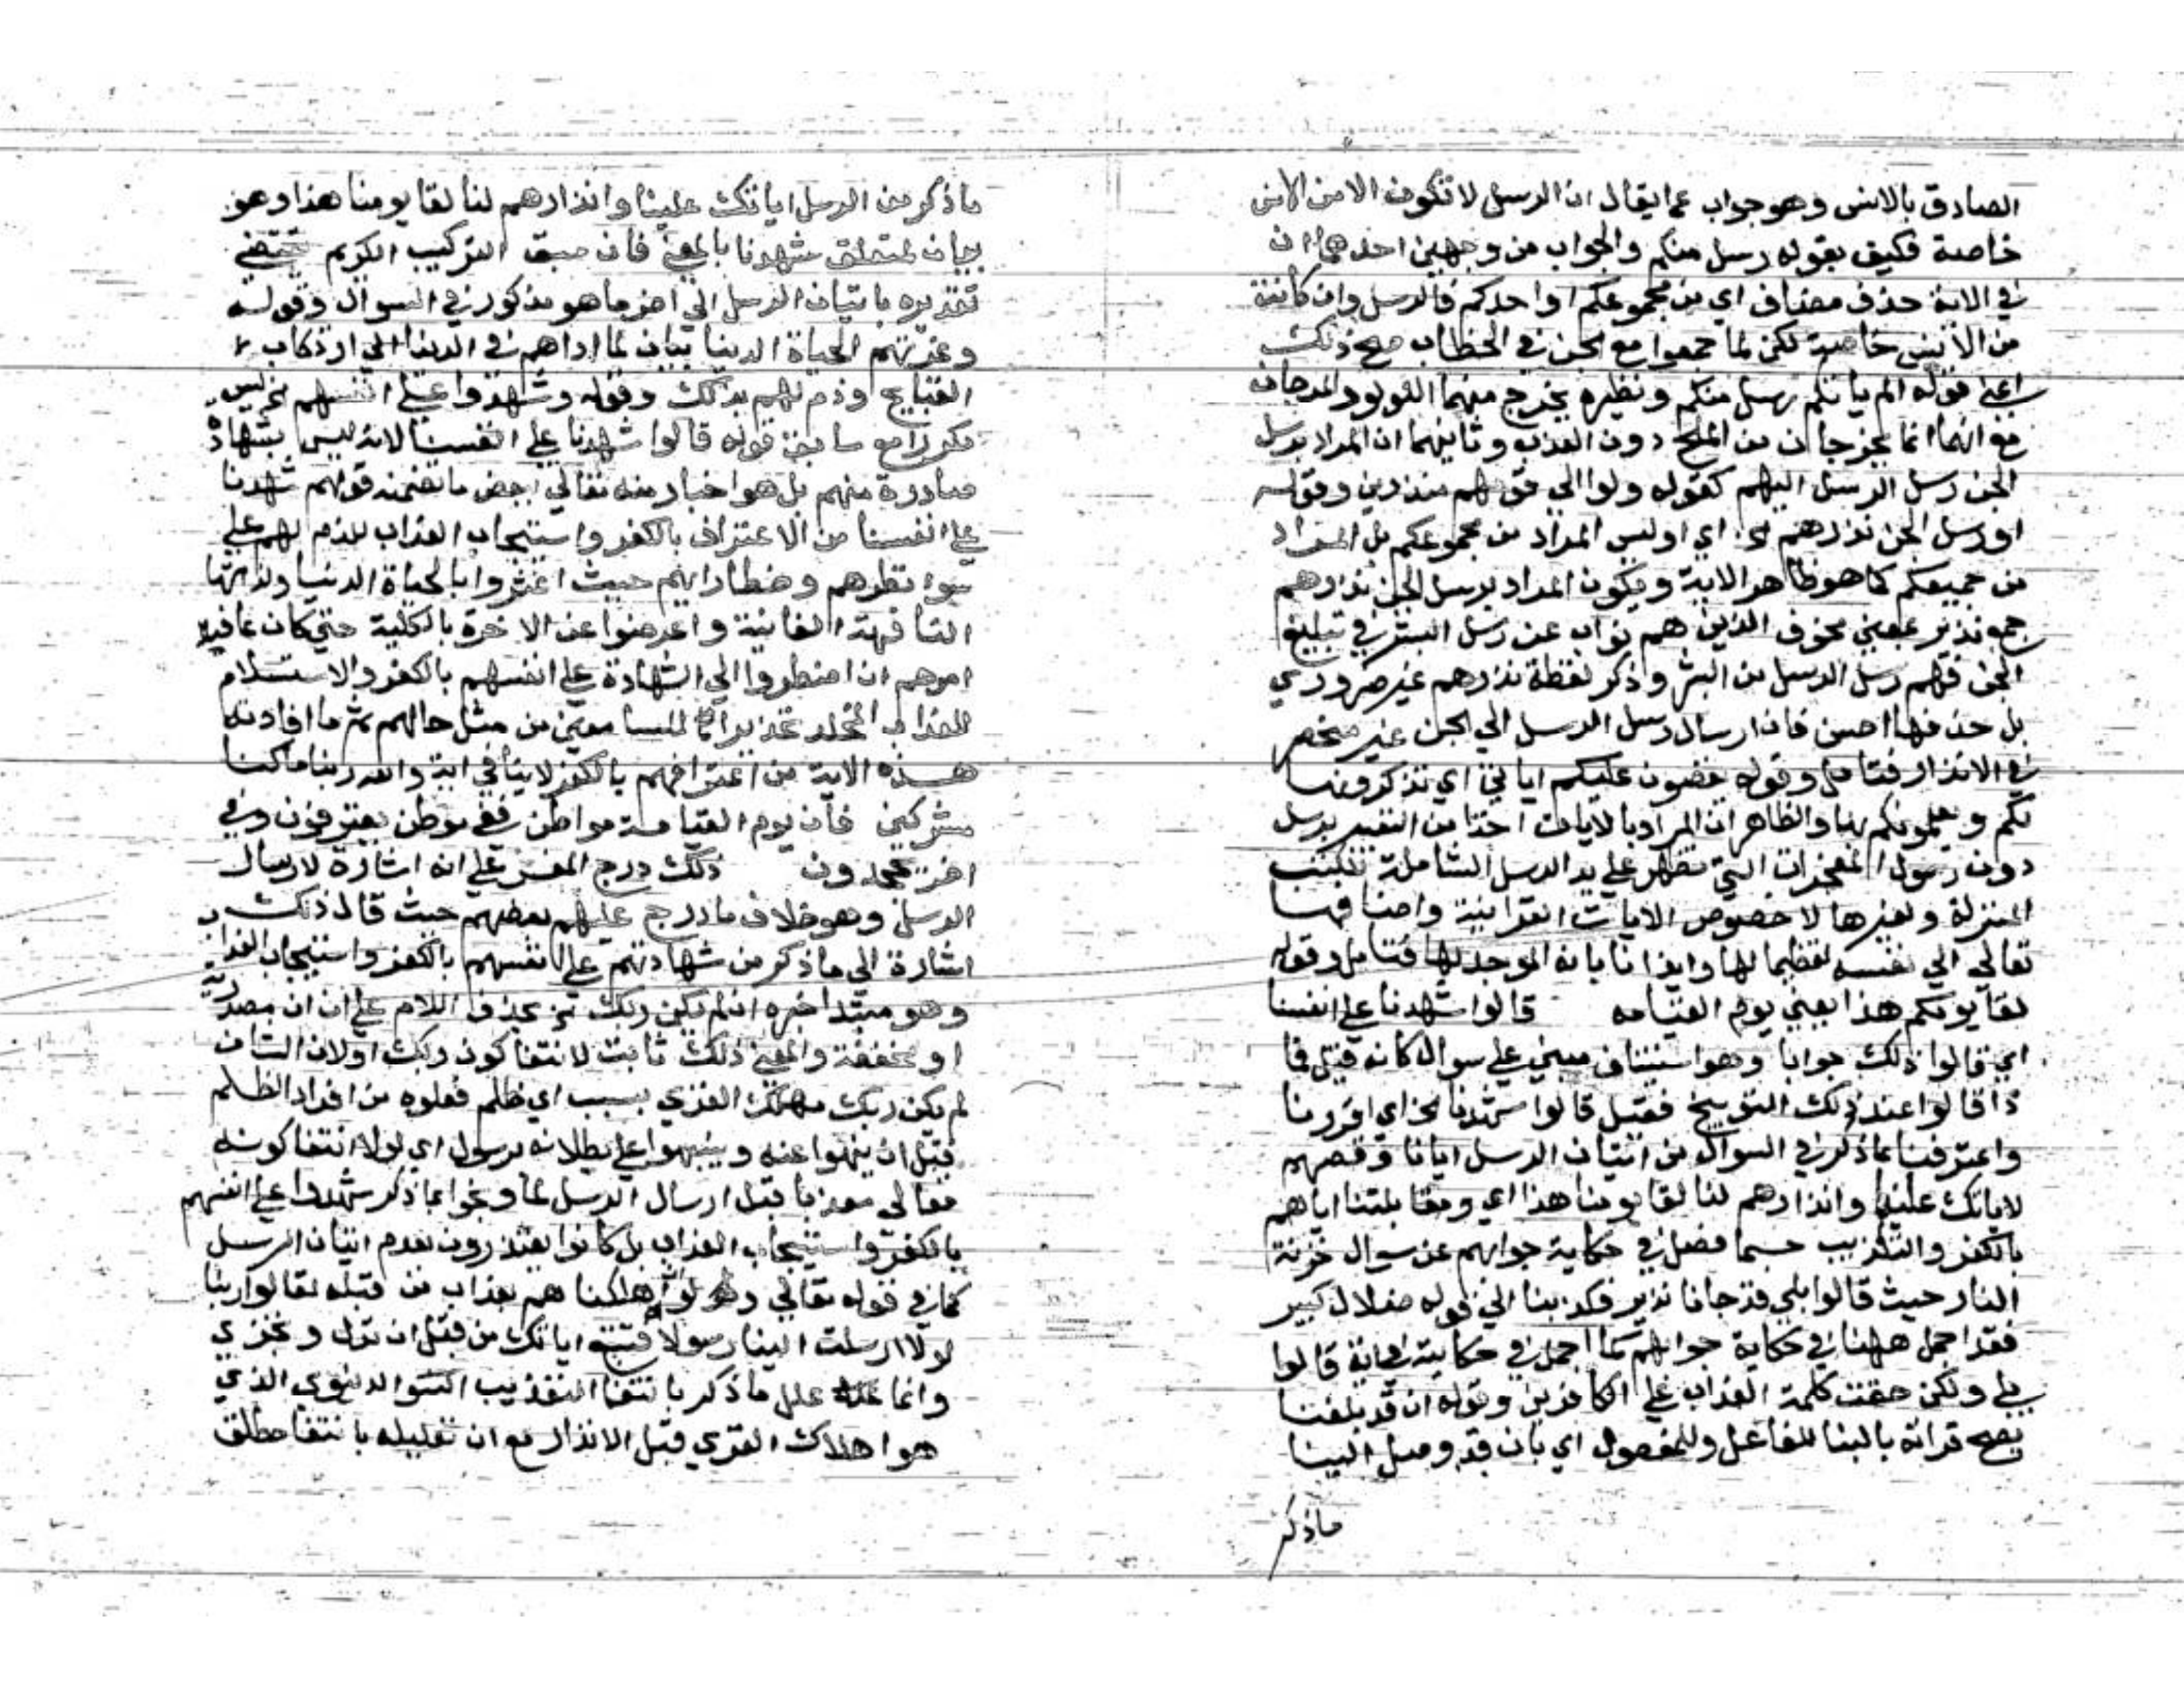 الصادق بالانس وهو جواب عما يقال ان الرسل لا تكون الا من الانس
خاصة فكيف بقوله رسل منكم والجواب من وجهين احدهما ان
في الاية حذف مضاف اي من مجموعكم او احدكم فالرسل وان كانت
من الانس خاصة لكن لما جمعوا مع الجن في الخطاب صح ذلك
اعني قوله الم ياتكم رسل منكم ونظيره يخرج منهما اللولو والمرجان
مع انهما انما يخرجان من الملح دون العذب وثانيهما ان المراد برسل
الجن رسل الرسل اليهم كقوله ولوا الي قومهم منذرين وقوله
او رسل الجن نذرهم اي او ليس المراد من مجموعكم بل المراد
من جميعكم كما هو ظاهر الاية ويكون المراد برسل الجن نذرهم
جمع نذير بمعني مخوف الذين هم نواب عن رسل البشر في تبليغ
الجن فهم رسل الرسل من البشر وذكر لفظة نذرهم غير ضروري
بل حذفها احسن فان ارسال رسل الرسل الي الجن غير منحصر
في الانذار فتامل وقوله يقصون عليكم اياتي اي يذكرونها
لكم ويعلمونكم بها والظاهر ان المراد بالايات اخذا من التعبير برسل
دون رسول المعجزات التي تظهر علي يد الرسل الشاملة للكتب
المنزلة ولغيرها لا خصوص الايات القرانية واضافها
تعالي الي نفسه تعظيما لها وايذانا بانه الموجد لها فتامل وقوله
لقا يومكم هذا يعني يوم القيامه قالوا شهدنا علي انفسنا
اي قالوا ذلك جوابا وهو استيناف مبني علي سوال كانه قيل فما
ذا قالوا عند ذلك التوبيخ فقيل قالوا شهدنا الخ اي اقررنا
واعترفنا بما ذكر في السوال من اتيان الرسل ايانا وقصهم
لاياتك علينا وانذارهم لنا لقا يومنا هذا اي ومقابلتنا اياهم
بالكفر والتكذيب حسبما فصل في حكاية جوابهم عن سوال خزنة
النار حيث قالوا بلي قد جانا نذير فكذبنا الي قوله ضلال كبير
فقد اجمل ههنا في حكاية جوابهم كما اجمل في حكايته في اية قالوا
بلي ولكن حقت كلمة العذاب علي الكافرين وقوله ان قد بلغنا
يصح قراته بالبنا للفاعل وللمفعول اي بان قد وصل الينا
ماذكر
ماذكر من الرسل اياتك علينا وانذارهم لنا لقا يومنا هذا وهو
بيان لمتعلق شهدنا بالمعني فان سبق التركيب الكريم يقتضي
تقديره باتيان الرسل الي اخر ما هو مذكور في السوال وقوله
وغرتهم الحياة الدنيا بيان لما اداهم في الدنيا الي ارتكاب
القبايح وذم لهم بذلك وقوله وشهدوا علي انفسهم الخ ليس
مكررا مع سابق قوله قالوا شهدنا علي انفسنا لانه ليس بشهادة
صادرة منهم بل هو اخبار منه تعالي ما تضمنه قولهم شهدنا
علي انفسنا من الاعتراف بالكفر واستيجاب العذاب للذم لهم علي
سوء نظرهم وخطا رايهم حيث اغتروا بالحياة الدنيا ولذاتها
التافهة الفانية واعرضوا عن الاخرة بالكلية حتي كان عاقبة
امرهم ان اضطروا الي الشهادة علي انفسهم بالكفر والاستسلام
للعذاب المخلد تحذيرا للسامعين من مثل حالهم ثم ما افادته
هذه الاية من اعترافهم بالكفر لا ينافي اية والله ربنا ما كنا
مشركين فان يوم القيامة مواطن ففي موطن يعترفون وفي
اخر يجحدون ذلك درج المفسر علي انه اشارة لارسال
الرسل وهو خلاف ما درج عليه بعضهم حيث قال ذلك
اشارة الي ما ذكر من شهادتهم علي انفسهم بالكفر واستيجاب العذاب
وهو مبتدا خبره ان لم يكن ربك الخ بحذف اللام علي ان ان مصدرية
او مخففة والمعني ذلك ثابت لانتفا كون ربك او لان الشان
لم يكن ربك مهلك القري بسبب اي ظلم فعلوه من افراد الظلم
قبل ان ينهوا عنه وينبهوا علي بطلانه برسول اي لولا انتفا كونه
تعالي معذبا قبل ارسال الرسل لما شهدوا علي انفسهم
بالكفر واستيجاب العذاب بل كانوا يعتذرون بعدم اتيان الرسل
كما في قوله تعالي ولو انا اهلكناهم بعذاب من قبله لقالوا ربنا
لولا ارسلت الينا رسولا فنتبع اياتك من قبل ان نذل ونخزي
وانما علل ما ذكر بانتفا التعذيب الدنيوي الذي
هو اهلاك القري قبل الانذار مع ان تعليله بانتفا مطلق